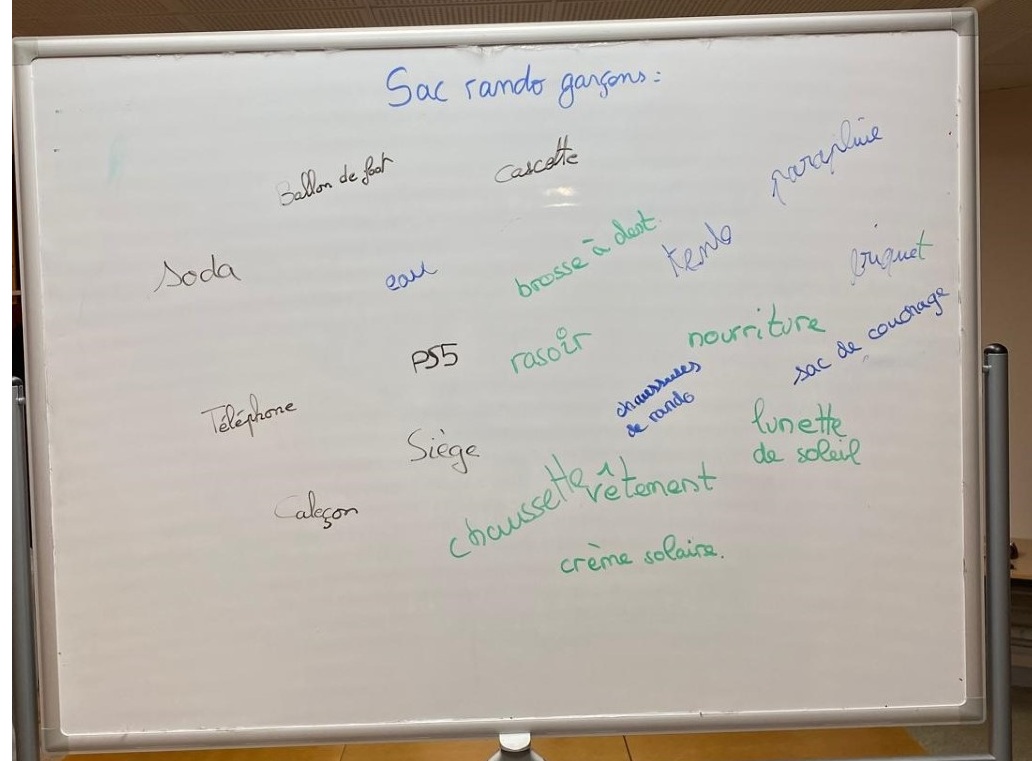 Sac rando garçons :
Ballon de foot
Casquette
parapluie
Soda
eau
brosse à dent
tente
briquet
PS5
rasoir
nourriture
sac de couchage
Téléphone
chaussures
de rando
Siège
lunette
de soleil
Caleçon
chaussette
vêtement
crème solaire.